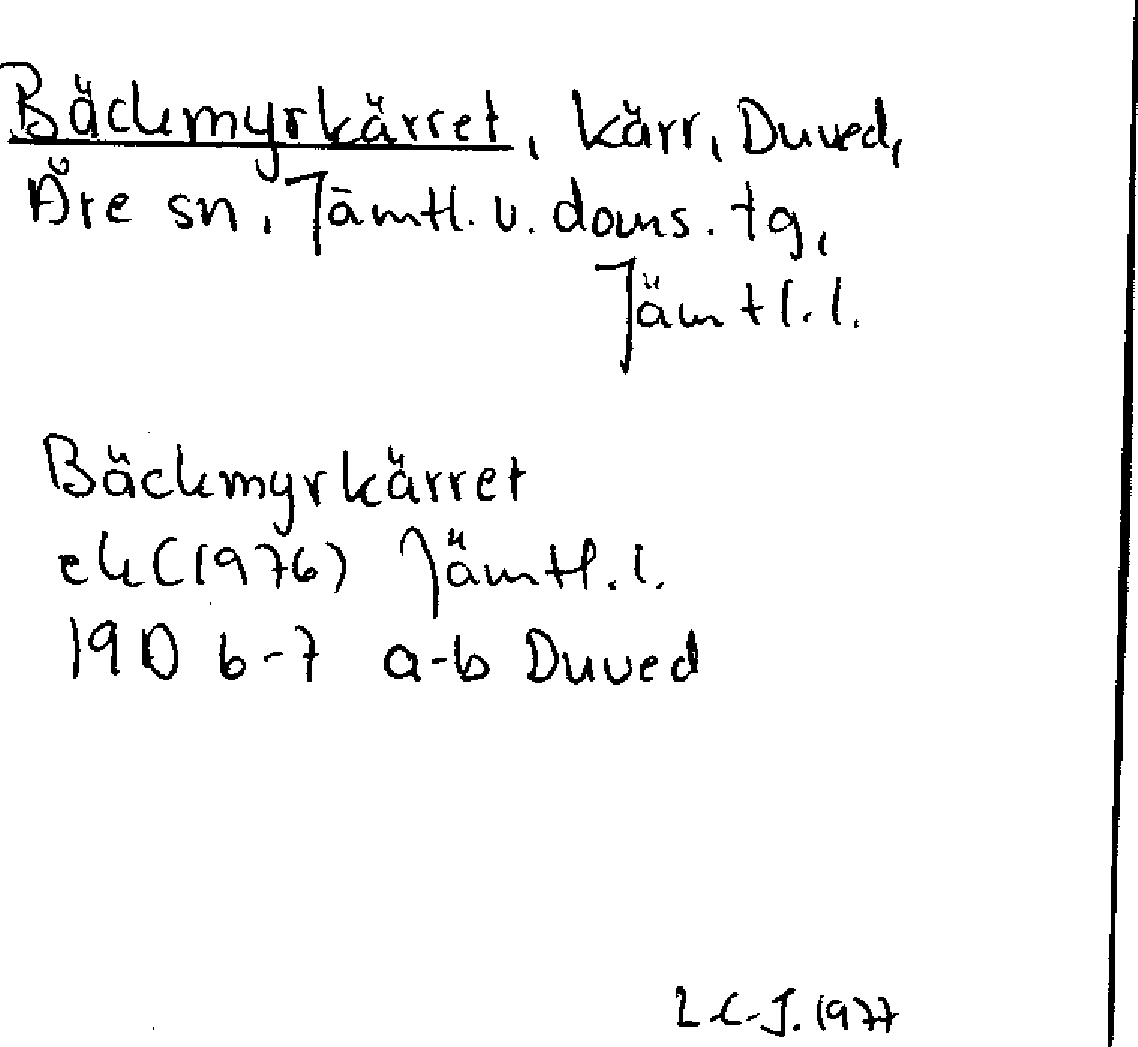 Bäckmyrkärret, kärr, Duved,
Åre sn, Jämtl. v. doms. tg,
Jämtl. l.
Bäckmyrkärret
ek (1976) Jämtl. l.
19D 6-7 a-b Duved
L C-J. 1977